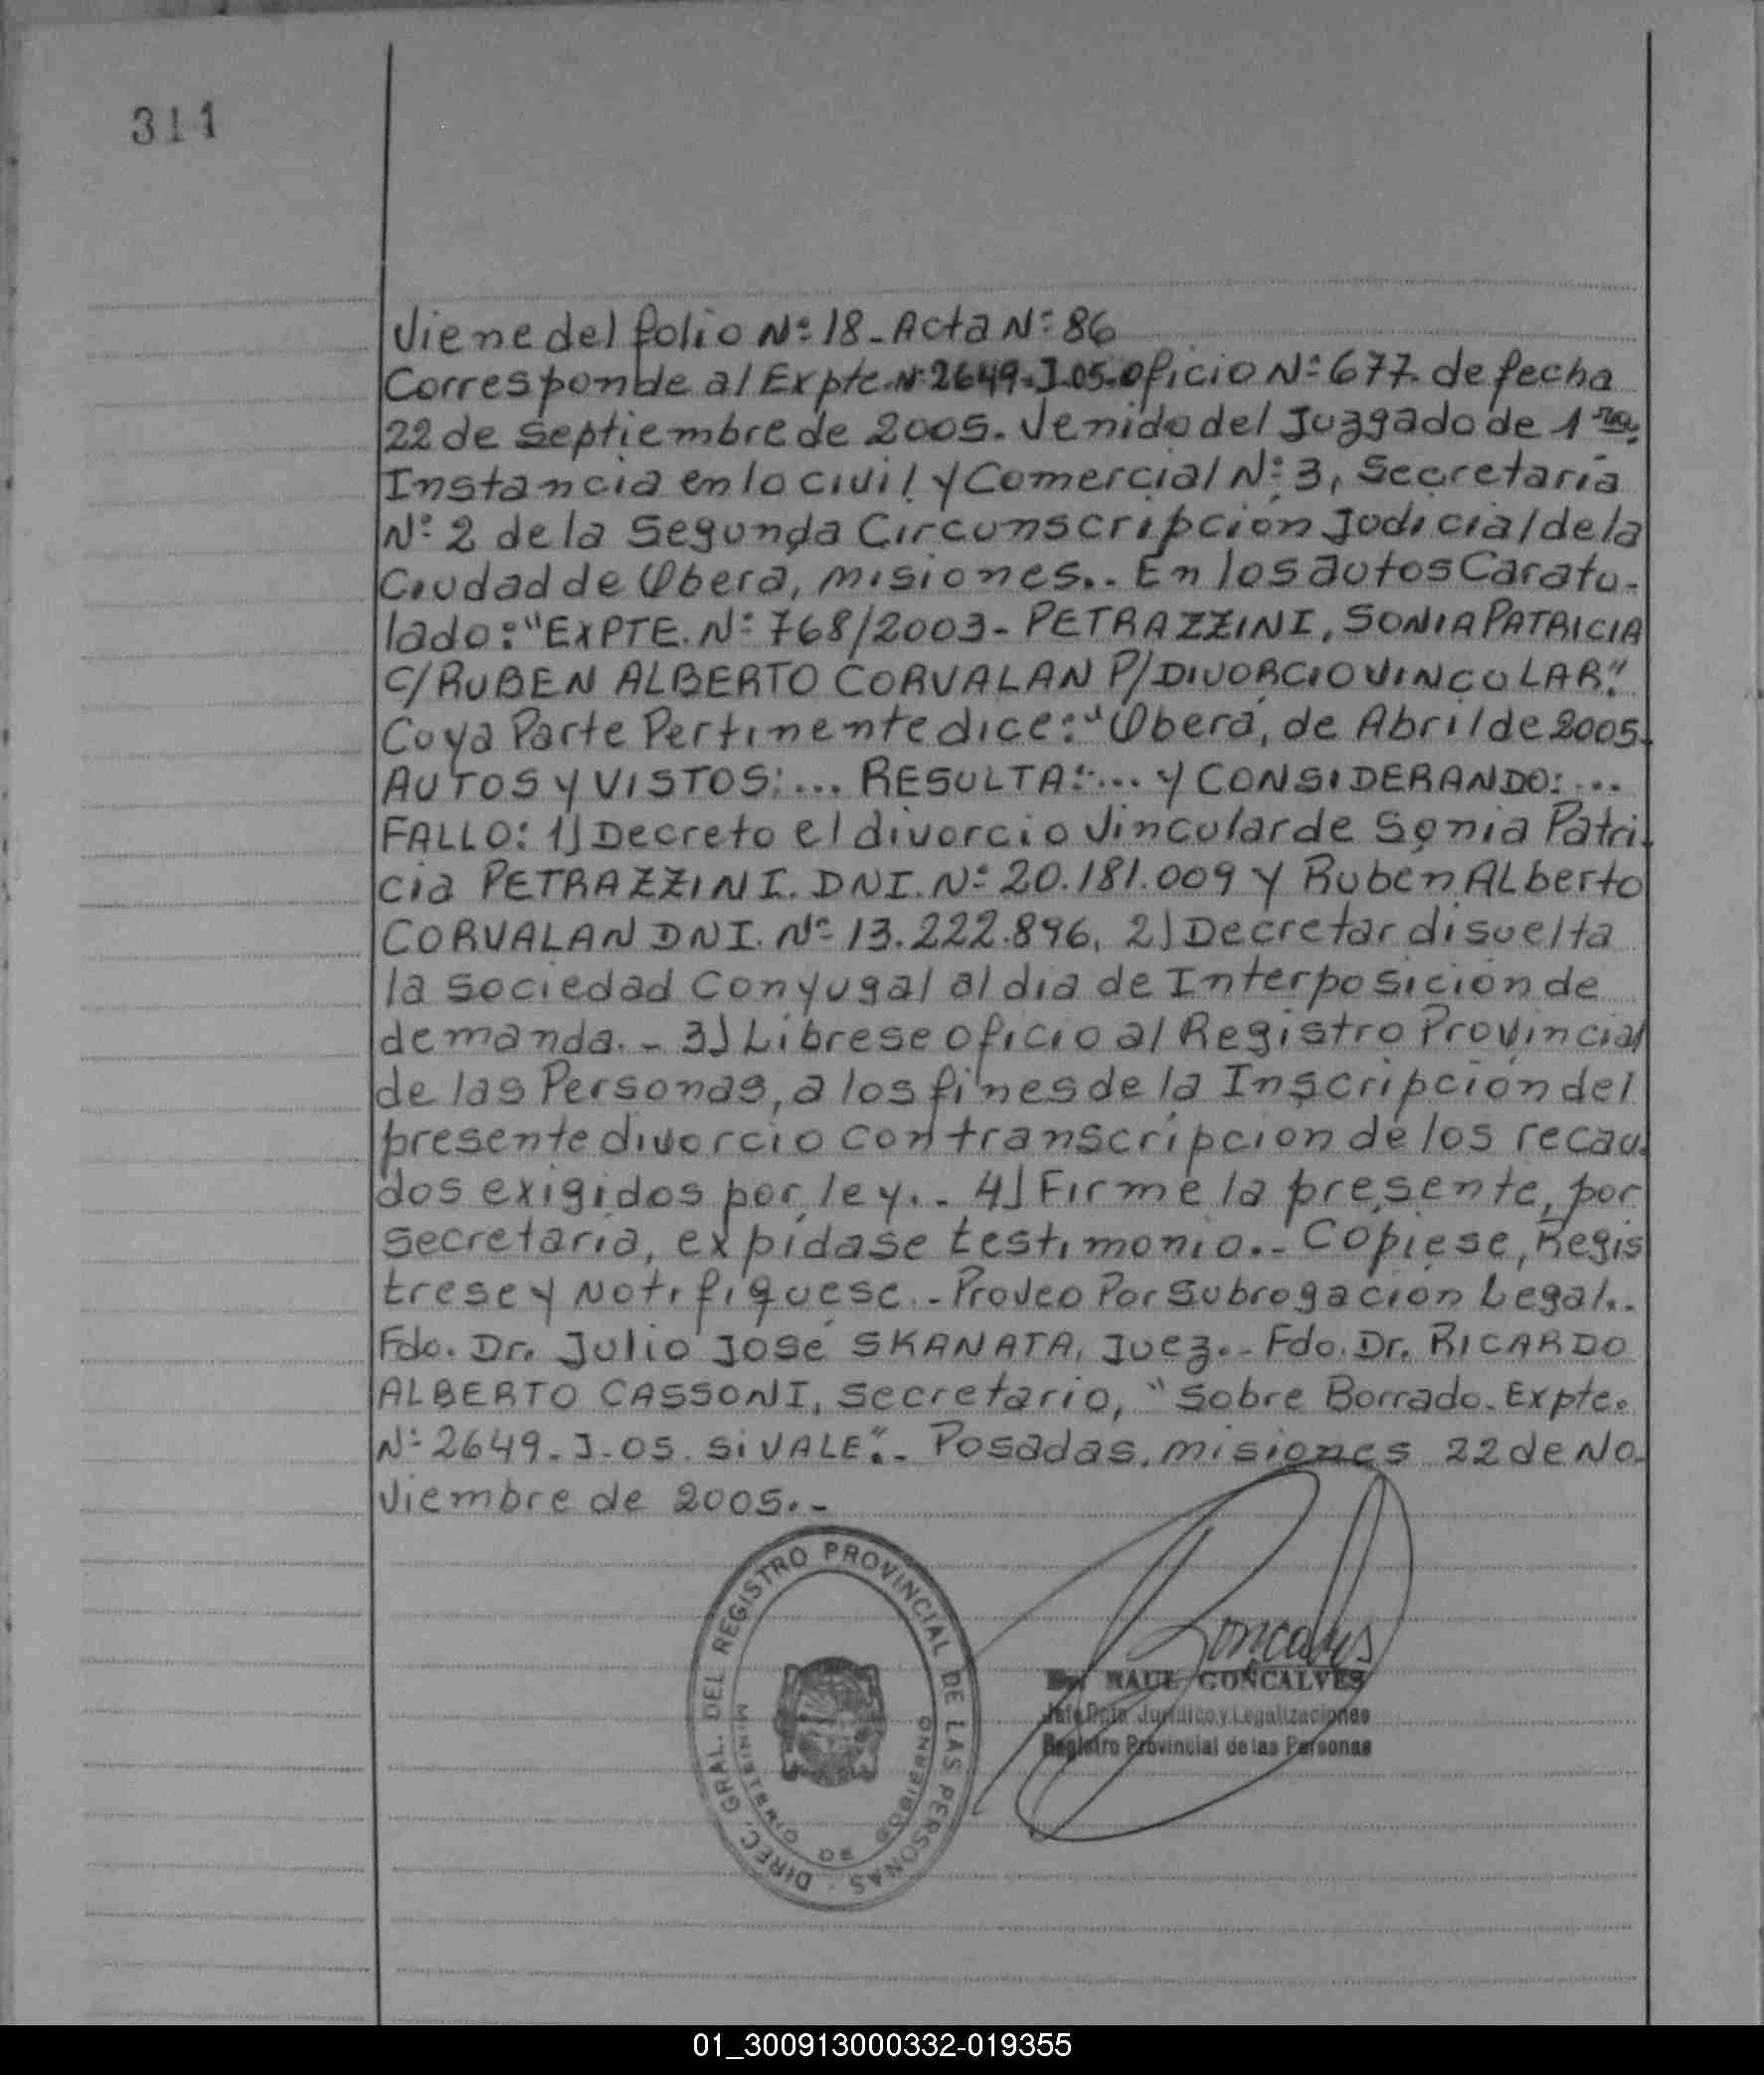 311
Viene del folio Nº 18 - Acta Nº 86
Corresponde al Expte. Nº 2649-J-05. Oficio Nº 677 de fecha
22 de Septiembre de 2005. Venido del Juzgado de 1ra.
Instancia en lo civil y Comercial Nº 3, Secretaria
Nº 2 de la Segunda Circunscripción Judicial de la
Ciudad de Obera, Misiones.- En los autos Caratu-
lado: "EXPTE. Nº 768/2003 - PETRAZZINI, SONIA PATRICIA
C/ RUBEN ALBERTO CORVALAN P/ DIVORCIO VINCULAR".
Cuya Parte Pertinente dice: "Oberá, de Abril de 2005.
AUTOS Y VISTOS: ... RESULTA: ... Y CONSIDERANDO: ...
FALLO: 1) Decreto el divorcio Vincular de Sonia Patri-
cia PETRAZZINI. DNI. Nº 20.181.009 y Ruben Alberto
CORVALAN DNI. Nº 13.222.896, 2) Decretar disuelta
la sociedad Conyugal al dia de Interposición de
demanda. - 3) Librese oficio al Registro Provincial
de las Personas, a los fines de la Inscripción del
presente divorcio con transcripcion de los recau-
dos exigidos por ley.- 4) Firme la presente, por
secretaria, expídase testimonio.- Copiese, Regis
trese y Notifíquese.- Proveo Por Subrogación Legal.-
Fdo. Dr. Julio José SKANATA, Juez.- Fdo. Dr. RICARDO
ALBERTO CASSONI, Secretario, "Sobre Borrado. Expte.
Nº 2649-J-05. Si VALE".- Posadas, Misiones 22 de No-
viembre de 2005.-
DIREC. GRAL. DEL REGISTRO PROVINCIAL DE LAS PERSONAS
MINISTERIO DE GOBIERNO
Goncalves
Dr. RAUL GONCALVES
Jefe Dpto. Jurídico y Legalizaciones
Registro Provincial de las Personas
01_300913000332-019355